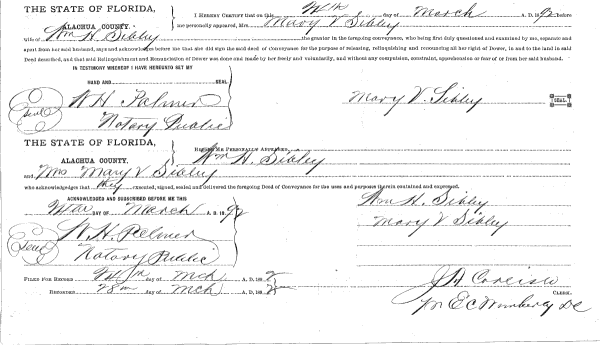 THE STATE OF FLORIDA,
ALACHUA COUNTY.
I HEREBY CERTIFY that on this day of March A. D. 1892 before
me personally appeared, Mrs Mary V Sibley
wife of Wm H. Sibley the grantor in the foregoing conveyance, who being first duly questioned and examined by me, separate and
apart from her said husband, says and acknowledges before me that she did sign the said deed of Conveyance for the purpose of releasing, relinquishing and renouncing all her right of Dower, in and to the land in said
Deed described, and that said Relinquishment and Renunciation of Dower was done and made by her freely and voluntarily, and without any compulsion, constraint, apprehension or fear of or from her said husband.
IN TESTIMONY WHEREOF I HAVE HEREUNTO SET MY
HAND AND SEAL
W H Palmer
Seal
Notary Public
Mary V. Sibley SEAL
THE STATE OF FLORIDA,
ALACHUA COUNTY.
BEFORE ME PERSONALLY APPEARED, Wm H. Sibley
and Mrs Mary V Sibley
who acknowledges that they executed, signed, sealed and delivered the foregoing Deed of Conveyance for the uses and purposes therein contained and expressed.
ACKNOWLEDGED AND SUBSCRIBED BEFORE ME THIS
DAY OF March A. D. 1892
Wm H. Sibley
Mary V Sibley
W. H. Palmer
Seal
Notary Public
FILED FOR RECORD 24 day of Mch A. D. 1892
RECORDED 28 day of Mch A. D. 1892
CLERK.